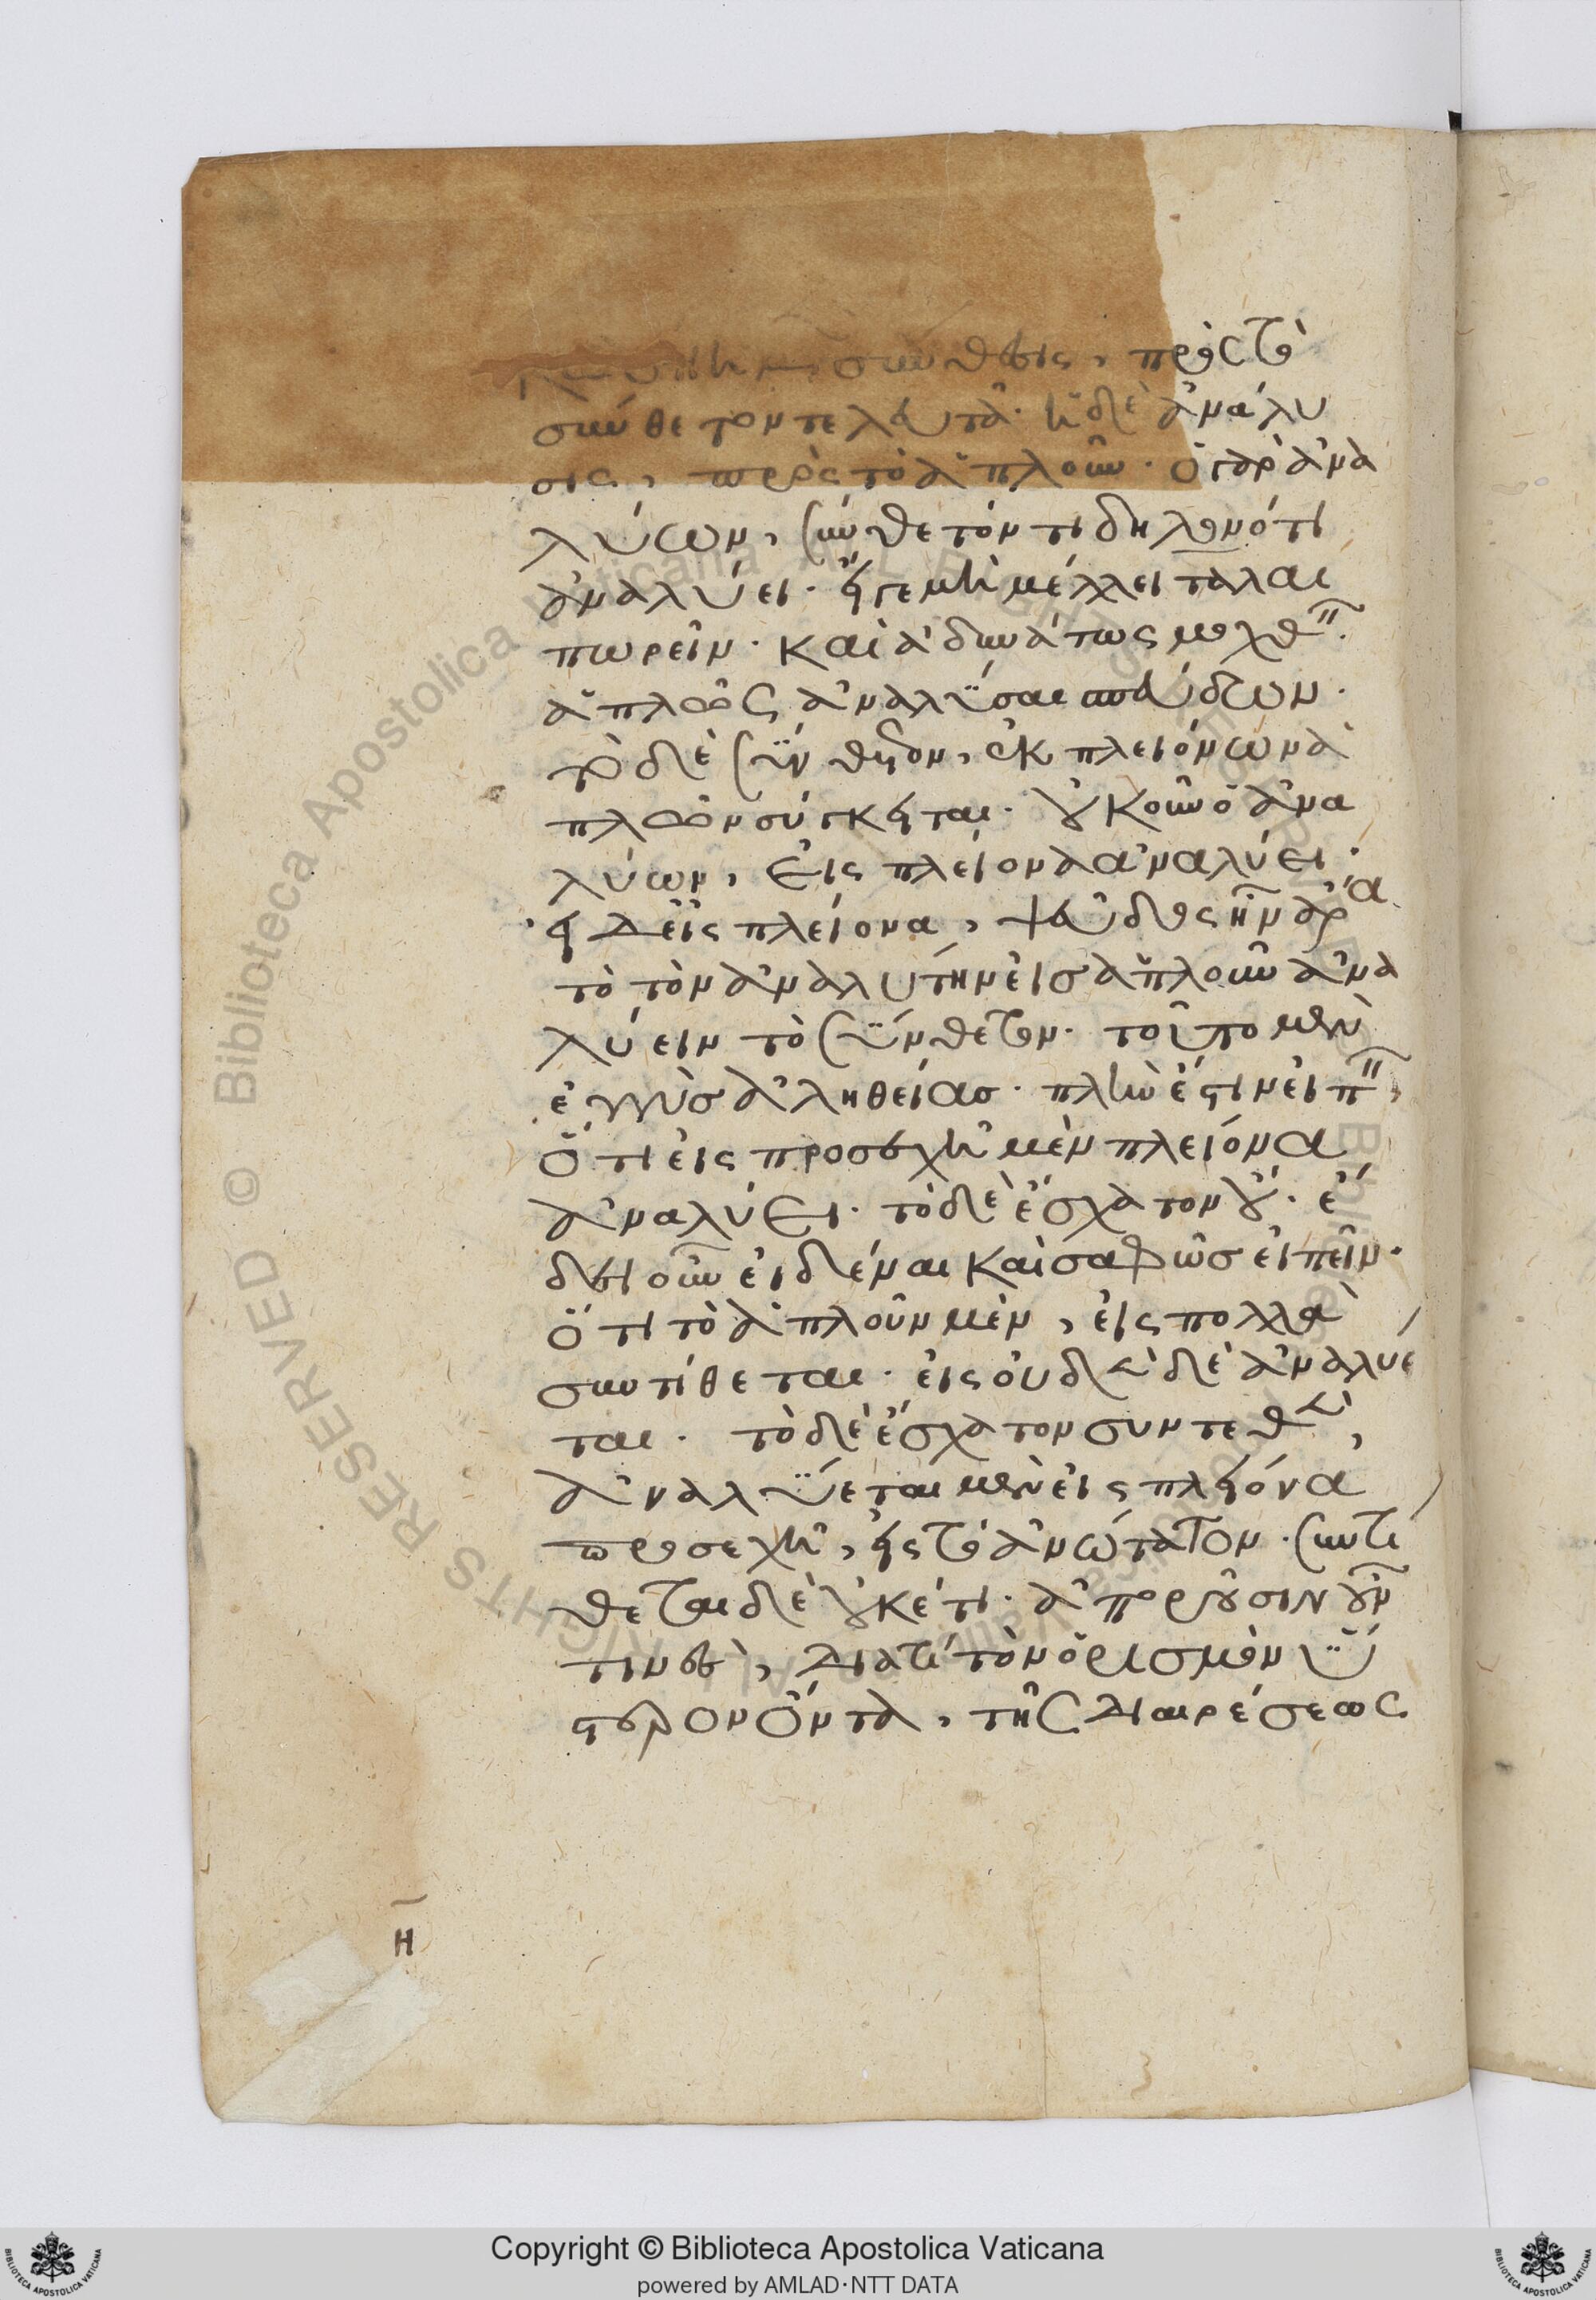 σύνθεσις, πρὸς τὸ
σύνθετον τελευτᾶ· ἡ δὲ ἀνάλυ
σις, πρὸς τὸ ἁπλοῦν· ὁ γὰρ ἀνα
λύων, σύνθετόν τι δηλονότι
ἀναλύει· εἴγε μὴ μέλλει ταλαι
πωρεῖν· καὶ ἀδυνάτως μοχθ
ἁπλῶς ἀναλῦσαι σπεύδων·
τὸ δὲ σύνθετον, ἐκ πλειόνων ἁ
πλῶν σύγκειται· οὐκοῦν ὁ ἀνα
λύων, εἰς πλείονα ἀναλύει·
εἰ δ' εἰς πλείονα, ψεῦδος ἦν ἄρα
τὸ τὸν ἀναλυτὴν εἰς ἁπλοῦν ἀνα
λύειν τὸ σύνθετον· τοῦτο μὲν
ἐγγὺς ἀληθείας· πλὴν ἔστιν εἰπ
ὅτι εἰς προσεχῆ μὲν πλείονα
ἀναλύει· τὸ δὲ ἔσχατον οὔ· ἔ
δει οὖν εἰδέναι καὶ σαφῶς εἰπεῖν·
ὅτι τὸ ἁπλοῦν μὲν, εἰς πολλὰ
συντίθεται· εἰς οὐδὲν δὲ ἀναλύε
ται· τὸ δὲ ἔσχατον συντεθὲν,
ἀναλύεται μὲν εἰς πλείονα
προσεχῆ, εἰς τὸ ἀνώτατον· συντί
θεται δὲ οὐκέτι· ἀποροῦσιν οὖν
τινὲς, διατί τὸν ὁρισμὸν ὕ
στερον ὄντα, τῆς διαιρέσεως
η
Copyright © Biblioteca Apostolica Vaticana
powered by AMLAD·NTT DATA